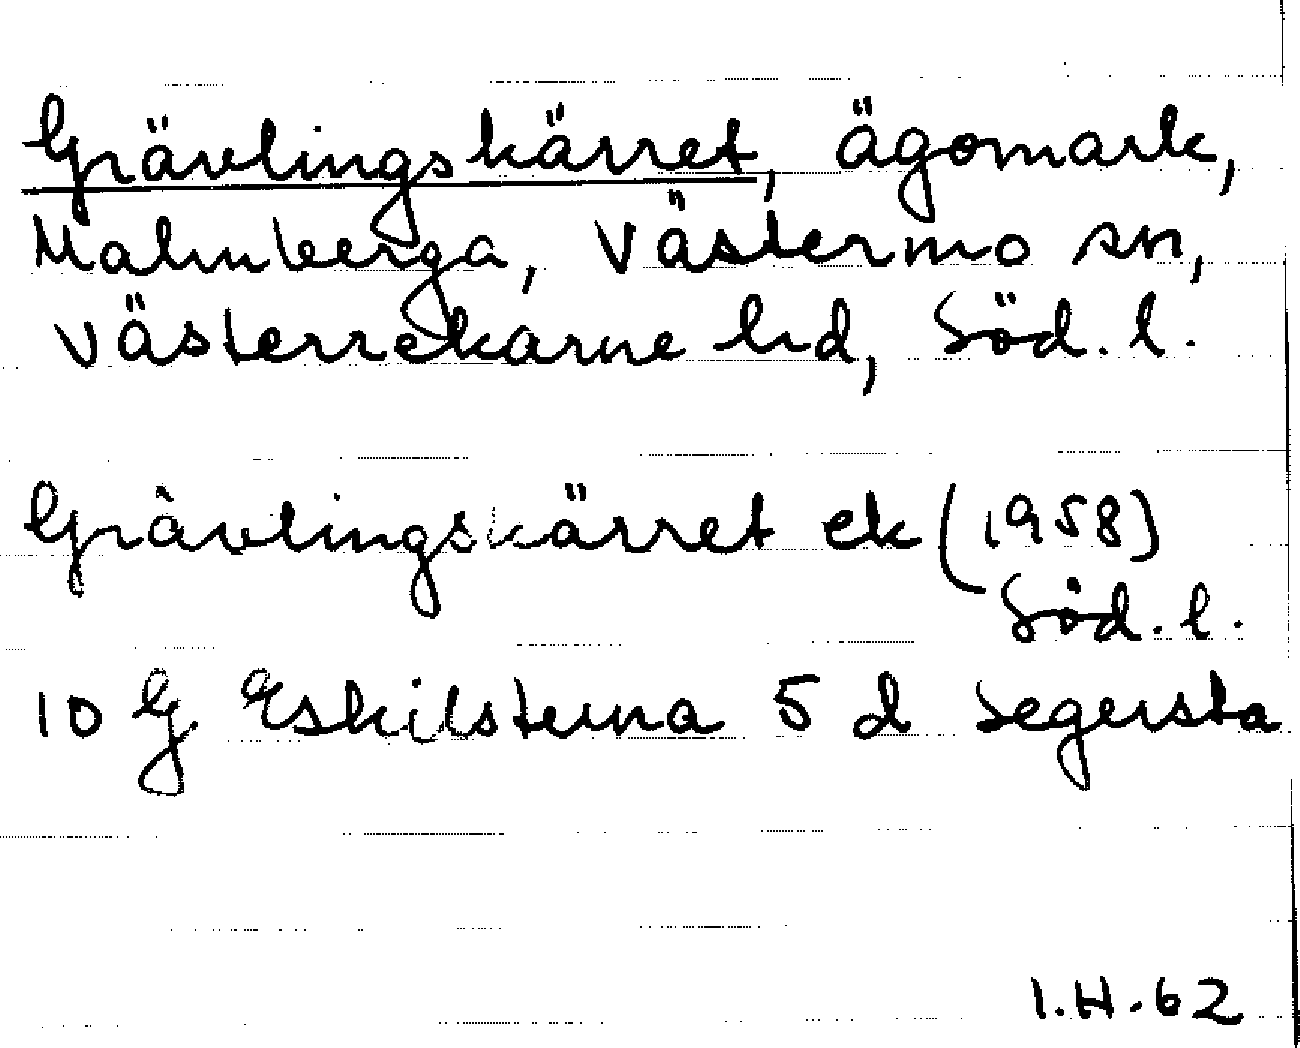 Grävlingskärret, ägomark,
Malmberga, Västermo sn,
Västerrekarne hd, Söd. l.
Grävlingskärret ek (1958)
Söd. l.
10 G Eskilstuna 5 d Segersta
I.H. 62